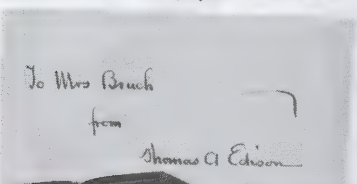 To Mrs Bruch
from
Thomas A Edison